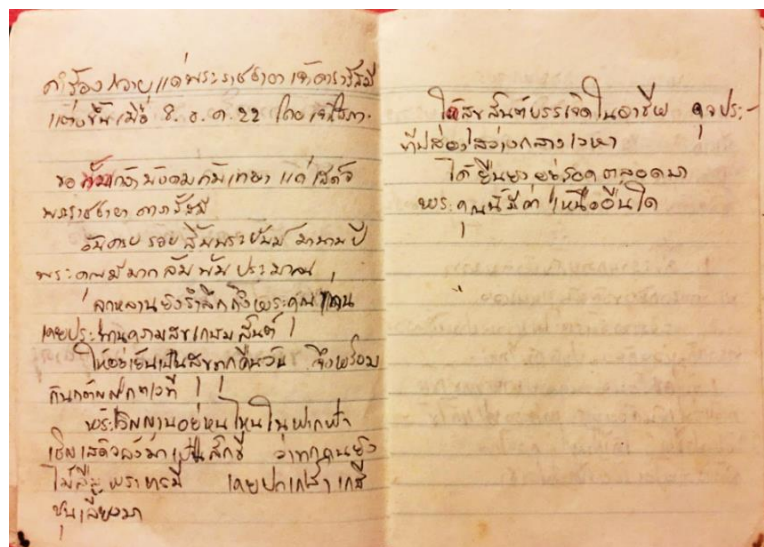 คำร้องถวายแด่พระราชชายาเจ้าดารารัศมี
แต่งขึ้นเมื่อ 8. ธ.ค. 22 โดย
ขอก้มเกล้าบังคมคัมเทษาแด่เสด็จ
พระราชชายาดารารัศมี
อันดาย ร้อยสิ้นพระชันษ์ มานานปี
พระคุณมีมากล้นพ้นประมาณ
ลูกหลานยังรำลึกถึงพระคุณแดน
เคยประทานความสุขเกษมสันต์
ให้อยู่เย็นเป็นสุขทุกคืนวัน จึงพร้อม
กันกตัญญุกตเวที
พระวิญญานอยู่หนไหนในฟากฟ้า
เชิญเสด็จลงมาเป็นสักขี ว่าทุกคนยัง
ไม่ลืมพระบารมี เคยปกเกล้าเกศี
ชุบเลี้ยงมา
ให้สุขสันต์บรรเจิดในอาชีพ ดุจประ-
ทีปส่องไสว่างกลางเวหา
ได้ยืนยงอยู่รอดตลอดมา
พระคุณนี้มีค่าเหนืออื่นใด